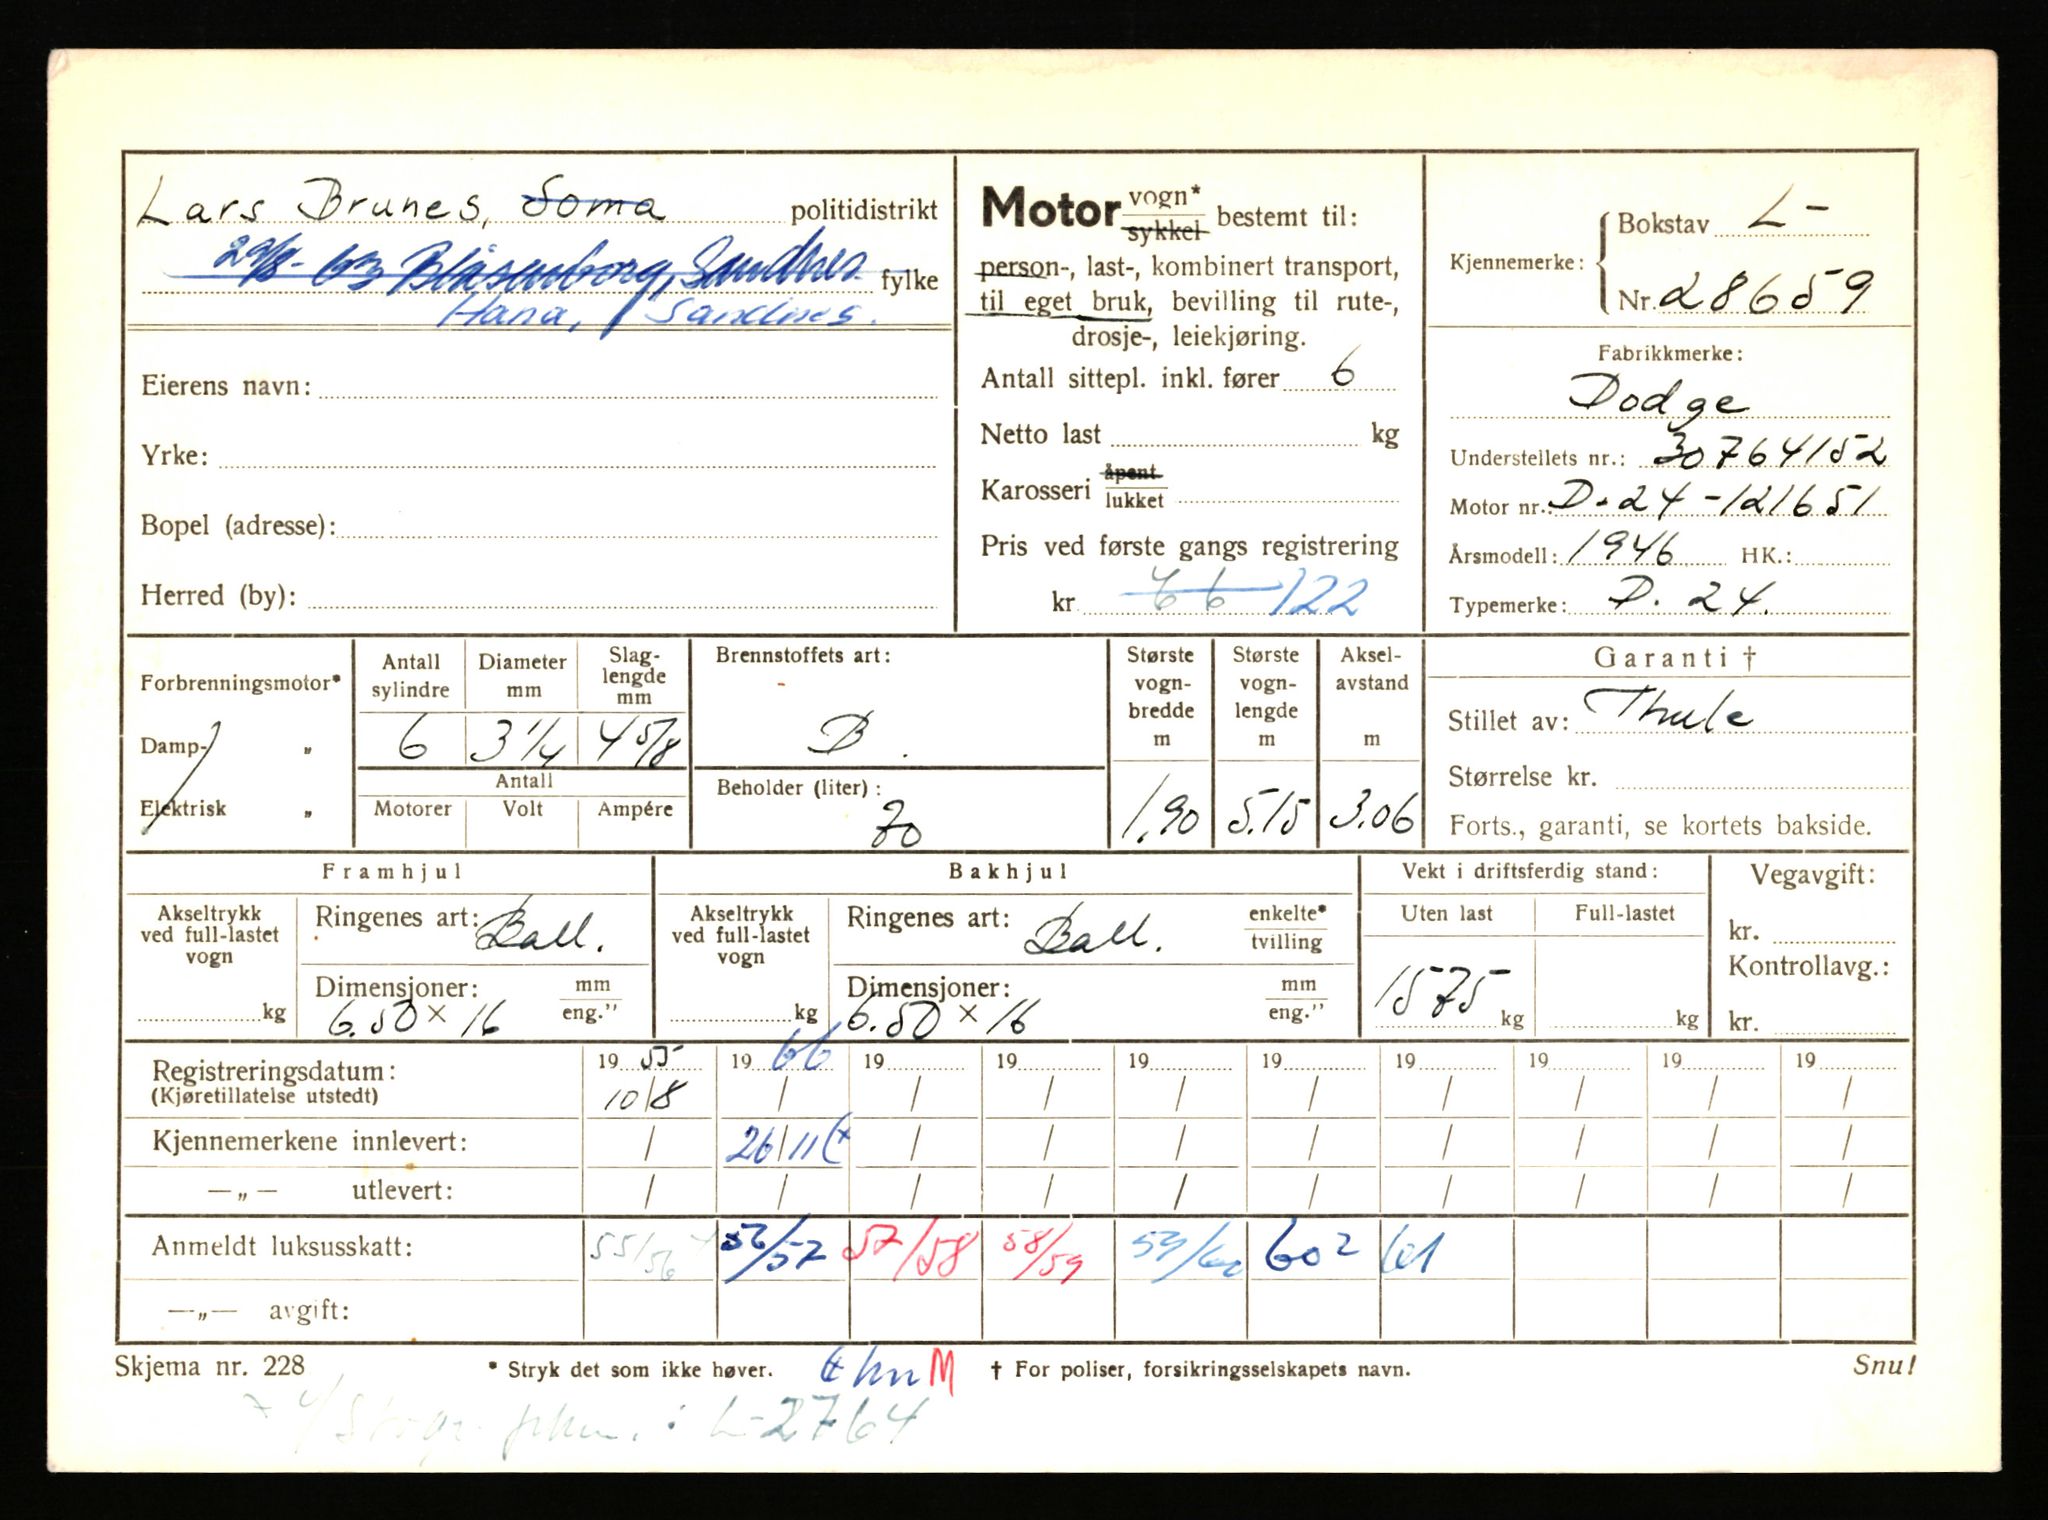 Lars Brunes, Soma politidistrikt
29/8-63 Blåsenborg, Sandnes fylke
Hana, Sandnes.
Eierens navn:
Yrke:
Bopel (adresse):
Herred (by):
Motor vogn* / sykkel bestemt til:
person-, last-, kombinert transport,
til eget bruk, bevilling til rute-,
drosje-, leiekjøring.
Antall sittepl. inkl. fører 6
Netto last kg
Karosseri åpent / lukket
Pris ved første gangs registrering
kr 66 122
Kjennemerke: Bokstav L-
Nr. 28659
Fabrikkmerke:
Dodge
Understellets nr.: 30764152
Motor nr.: D-24-121651
Årsmodell: 1946 HK.:
Typemerke: D. 24.
Forbrenningsmotor*
Damp- "
Elektrisk "
Antall sylindre 6
Diameter mm 3 1/4
Slaglengde mm 4 5/8
Antall
Motorer Volt Ampére
Brennstoffets art:
B.
Beholder (liter):
70
Største vognbredde m 1,90
Største vognlengde m 5.15
Akselavstand m 3.06
Garanti †
Stillet av: Thule
Størrelse kr.
Forts., garanti, se kortets bakside.
Framhjul
Akseltrykk ved full-lastet vogn kg
Ringenes art: Ball.
Dimensjoner: mm / eng."
6.50 × 16
Bakhjul
Akseltrykk ved full-lastet vogn kg
Ringenes art: Ball. enkelte* / tvilling
Dimensjoner: mm / eng."
6.50 × 16
Vekt i driftsferdig stand:
Uten last Full-lastet
1575 kg kg
Vegavgift:
kr.
Kontrollavg.:
kr.
Registreringsdatum: 19 55 19 66 19 19 19 19 19 19 19 19
(Kjøretillatelse utstedt) 10/8 / / / / / / / / /
Kjennemerkene innlevert: / 26/11 / / / / / / / /
—„— utlevert: / / / / / / / / / /
Anmeldt luksusskatt: 55/56 56/57 57/58 58/59 59/60 60 2 61
—„— avgift:
Skjema nr. 228 * Stryk det som ikke høver. M † For poliser, forsikringsselskapets navn. Snu!
: L-2764